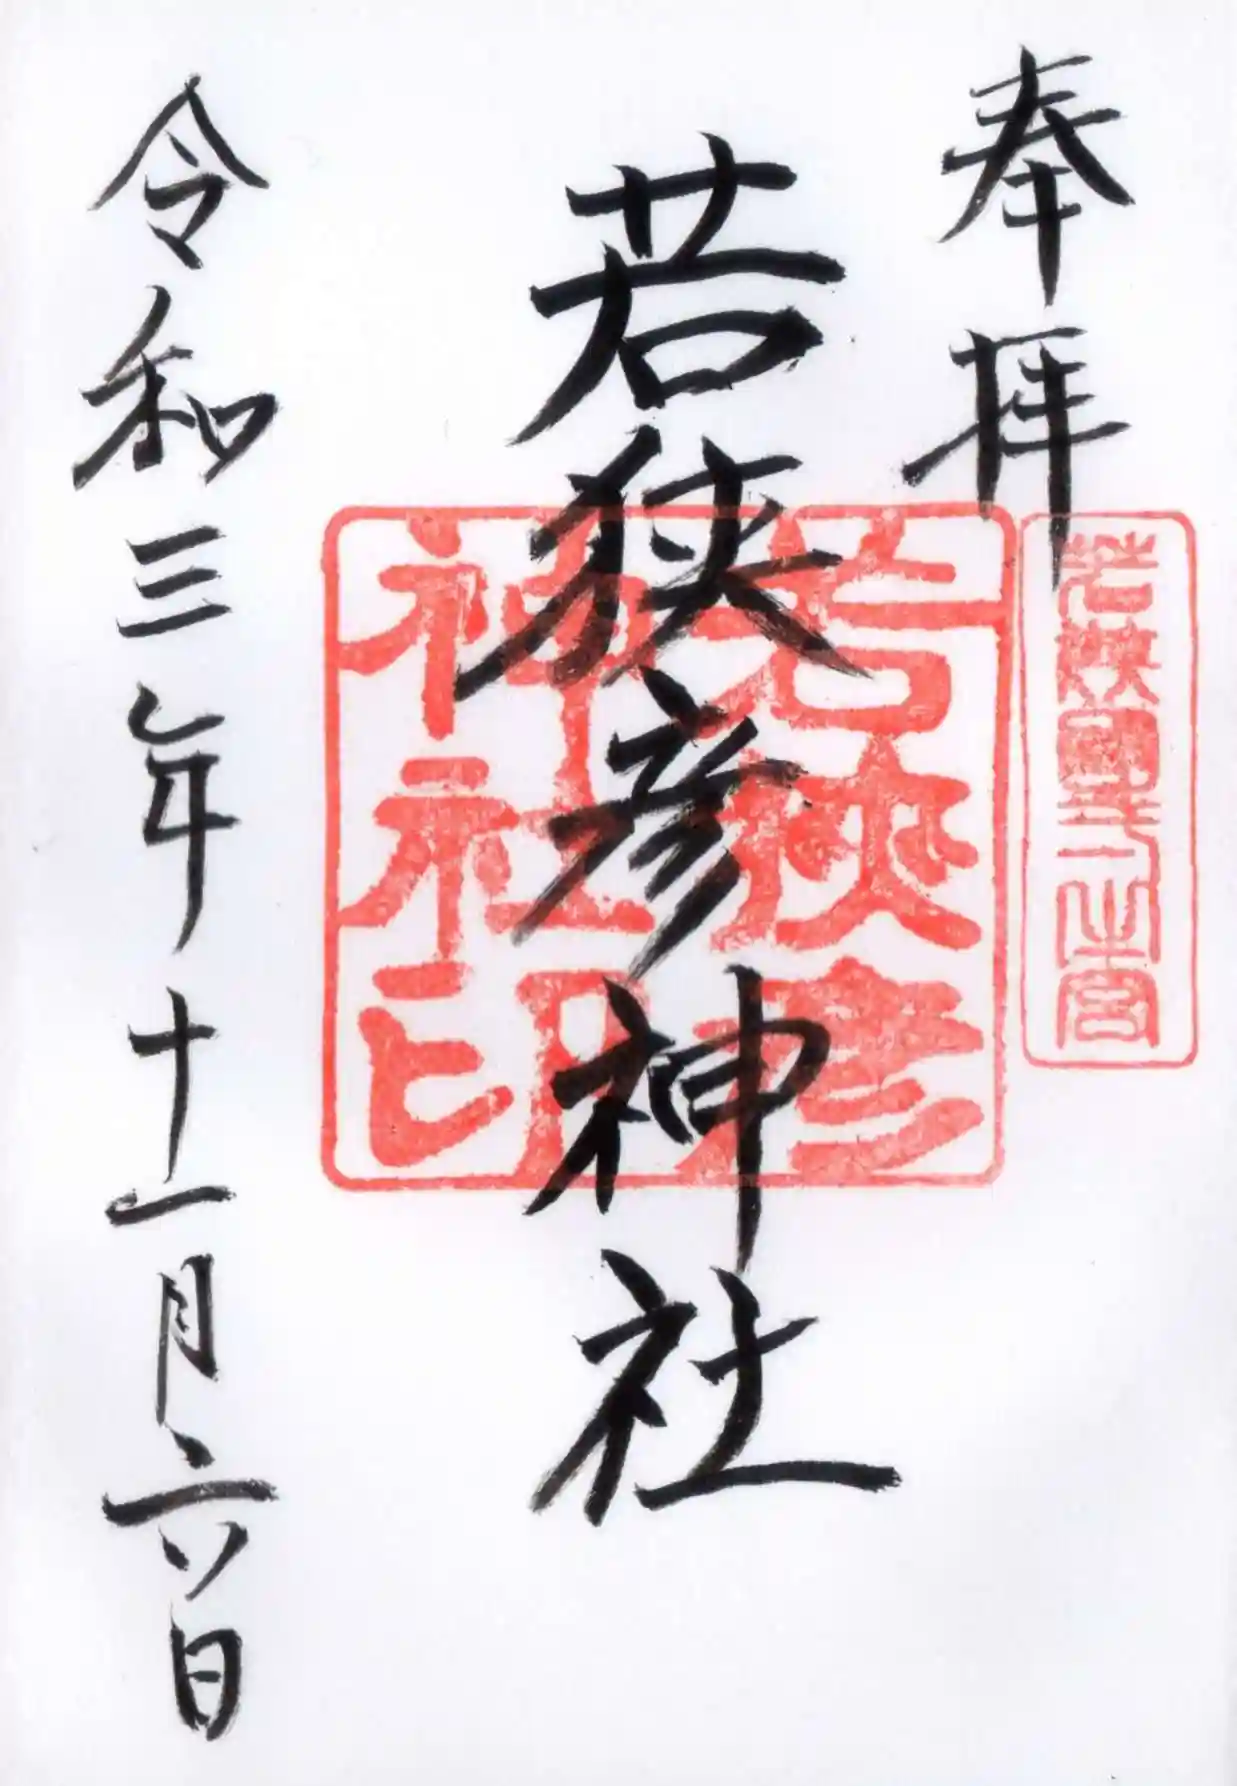 奉拝
若狭國一之宮
若狭彦神社
若狭彦
神社印
令和三年十一月六日